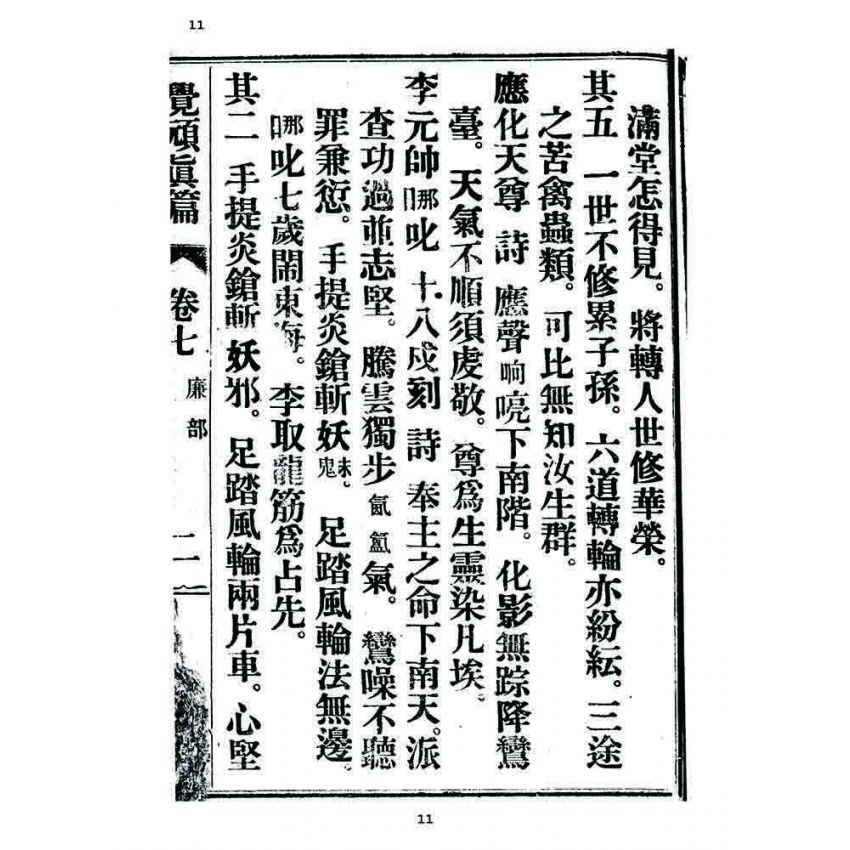 11
滿堂怎得見。將轉人世修華榮。
其五 一世不修累子孫。六道轉輪亦紛紜。三途
之苦禽蟲類。可比無知汝生群。
應化天尊 詩 應聲响喨下南階。化影無踪降鸞
臺。天氣不順須虔敬。尊為生靈染凡埃。
李元帥哪叱 十八戍刻 詩 奉主之命下南天。派
查功過並志堅。騰雲獨步氤氳氣。鸞噪不聽
罪兼愆。手提炎鎗斬妖魅。足踏風輪法無邊。
哪叱七歲鬧東海。李取龍筋為占先。
其二 手提炎鎗斬妖邪。足踏風輪兩片車。心堅
覺頑眞篇 卷七 廉部 二
11